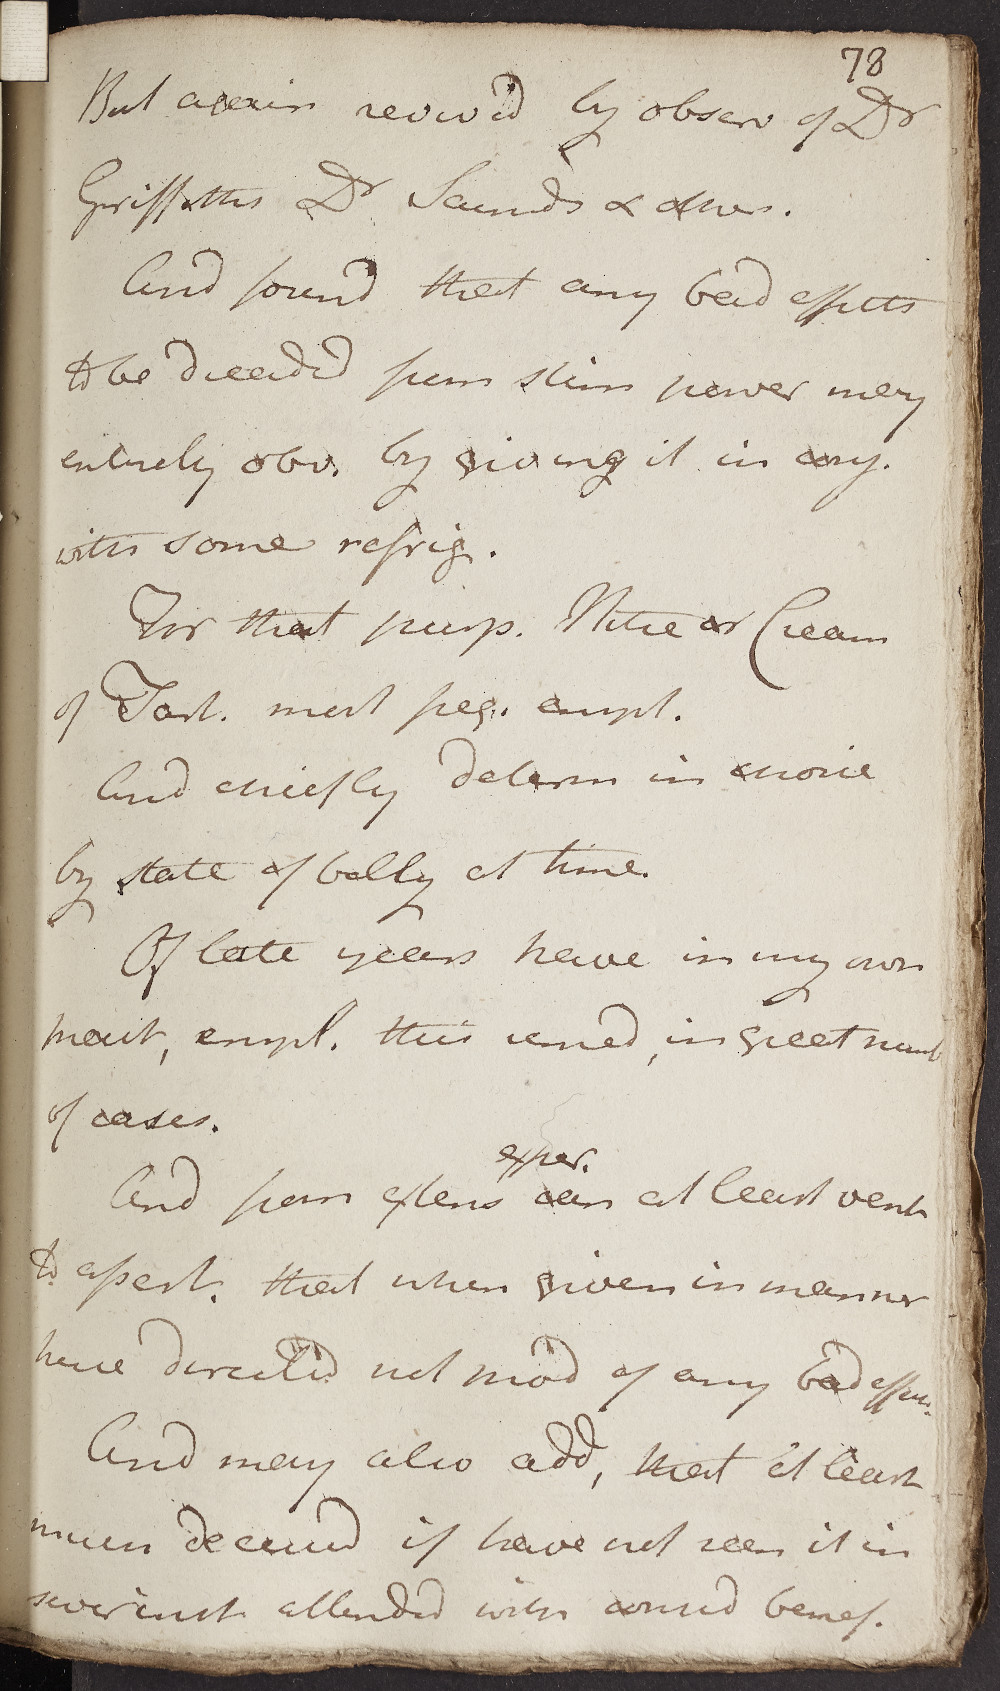 78
But again reviv'd by observ of Dr
Griffiths Dr Saunds & others.
And found that any bad effects
to be dreaded from stim power may
entirely obv. by giving it in conj.
with some refrig.
For that purp. Nitre or Cream
of Tart. most freq. empl.
And chiefly determ in choice
by state of belly at time.
Of late years have in my own
pract, empl. this remed, in great numb
of cases.
exper.
And from extens can at least vent
to assert. that when given in manner
have directed not prod of any bad effects.
And may also add, that at least
much deceived if have not seen it in
sever inst attended with consid benef.